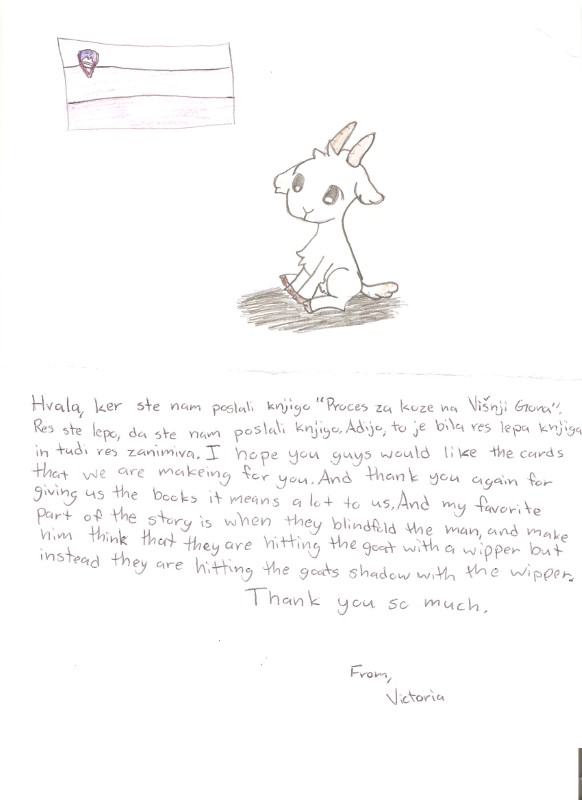 Hvala, ker ste nam poslali knjigo "Proces za koze na Višnji Grona".
Res ste lepo, da ste nam poslali knjigo. Adijo, to je bila res lepa knjiga
in tudi res zanimiva. I hope you guys would like the cards
that we are makeing for you. And thank you again for
giving us the books it means a lot to us. And my favorite
part of the story is when they blindfold the man, and make
him think that they are hitting the goat with a wipper but
instead they are hitting the goats shadow with the wipper.
Thank you so much.
From,
Victoria